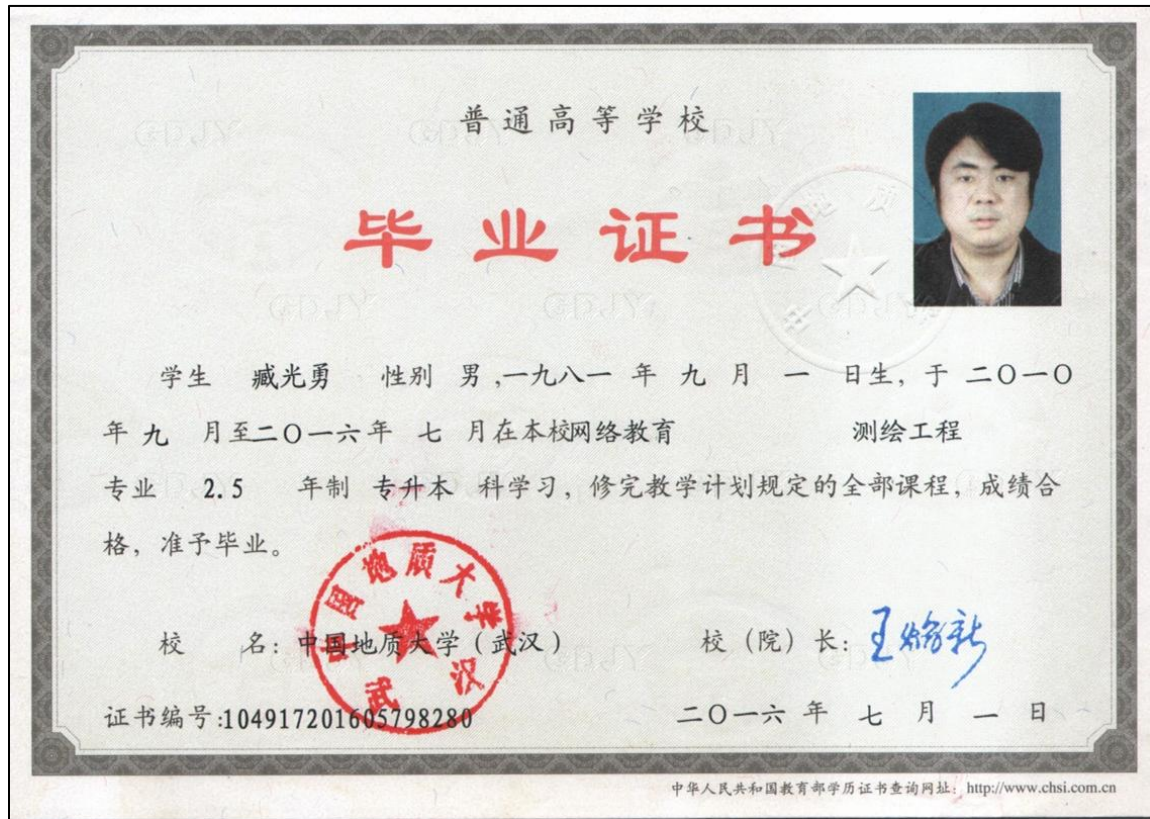 普通高等学校
毕业证书
学生 臧光勇 性别 男,一九八一 年 九 月 一 日生, 于 二〇一〇
年 九 月至二〇一六年 七 月在本校网络教育 测绘工程
专业 2.5 年制 专升本 科学习, 修完教学计划规定的全部课程, 成绩合
格, 准予毕业。
中国地质大学
武汉
校 名: 中国地质大学(武汉) 校(院)长: 王焰新
证书编号:104917201605798280 二〇一六 年 七 月 一 日
中华人民共和国教育部学历证书查询网址: http://www.chsi.com.cn